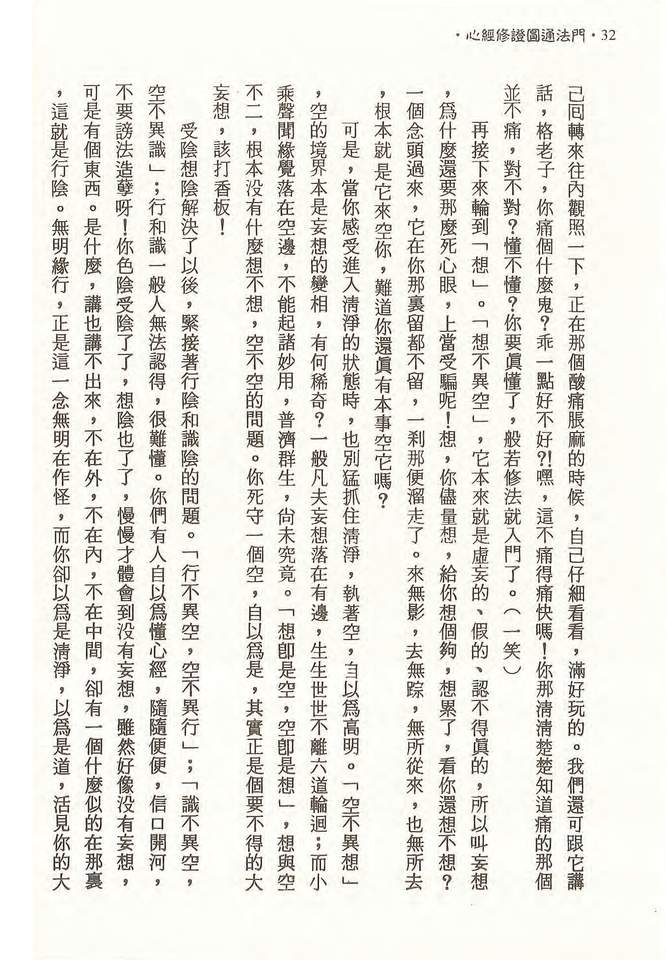 ・心經修證圓通法門・32
己囘轉來往內觀照一下，正在那個酸痛脹麻的時候，自己仔細看看，滿好玩的。我們還可跟它講
話，格老子，你痛個什麼鬼？乖一點好不好？！嘿，這不痛得痛快嗎！你那淸淸楚楚知道痛的那個
並不痛，對不對？懂不懂？你要眞懂了，般若修法就入門了。（一笑）
再接下來輪到「想」。「想不異空」，它本來就是虛妄的、假的、認不得眞的，所以叫妄想
，爲什麼還要那麼死心眼，上當受騙呢！想，你儘量想，給你想個夠，想累了，看你還想不想？
一個念頭過來，它在你那裏留都不留，一刹那便溜走了。來無影，去無踪，無所從來，也無所去
，根本就是它來空你，難道你還眞有本事空它嗎？
可是，當你感受進入淸淨的狀態時，也別猛抓住淸淨，執著空，自以爲高明。「空不異想」
，空的境界本是妄想的變相，有何稀奇？一般凡夫妄想落在有邊，生生世世不離六道輪迴；而小
乘聲聞緣覺落在空邊，不能起諸妙用，普濟群生，尙未究竟。「想卽是空，空卽是想」，想與空
不二，根本没有什麼想不想，空不空的問題。你死守一個空，自以爲是，其實正是個要不得的大
妄想，該打香板！
受陰想陰解決了以後，緊接著行陰和識陰的問題。「行不異空，空不異行」；「識不異空，
空不異識」；行和識一般人無法認得，很難懂。你們有人自以爲懂心經，隨隨便便，信口開河，
不要謗法造孽呀！你色陰受陰了了，想陰也了了，慢慢才體會到没有妄想，雖然好像没有妄想，
可是有個東西。是什麼，講也講不出來，不在外，不在內，不在中間，卻有一個什麼似的在那裏
，這就是行陰。無明緣行，正是這一念無明在作怪，而你卻以爲是淸淨，以爲是道，活見你的大